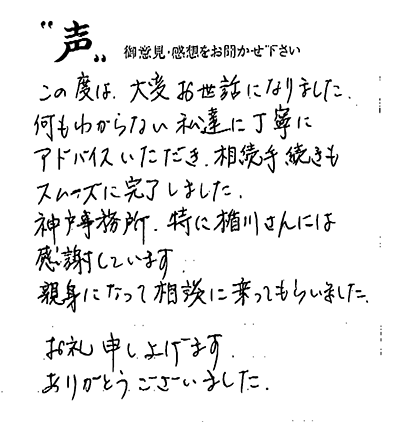 “声„ 御意見・感想をお聞かせ下さい
この度は、大変お世話になりました.
何もわからない私達に丁寧に
アドバイスいただき、相続手続きも
スムーズに完了しました.
神戸事務所、特に楯川さんには
感謝しています.
親身になって相談に乗ってもらいました.
お礼申し上げます.
ありがとうございました.